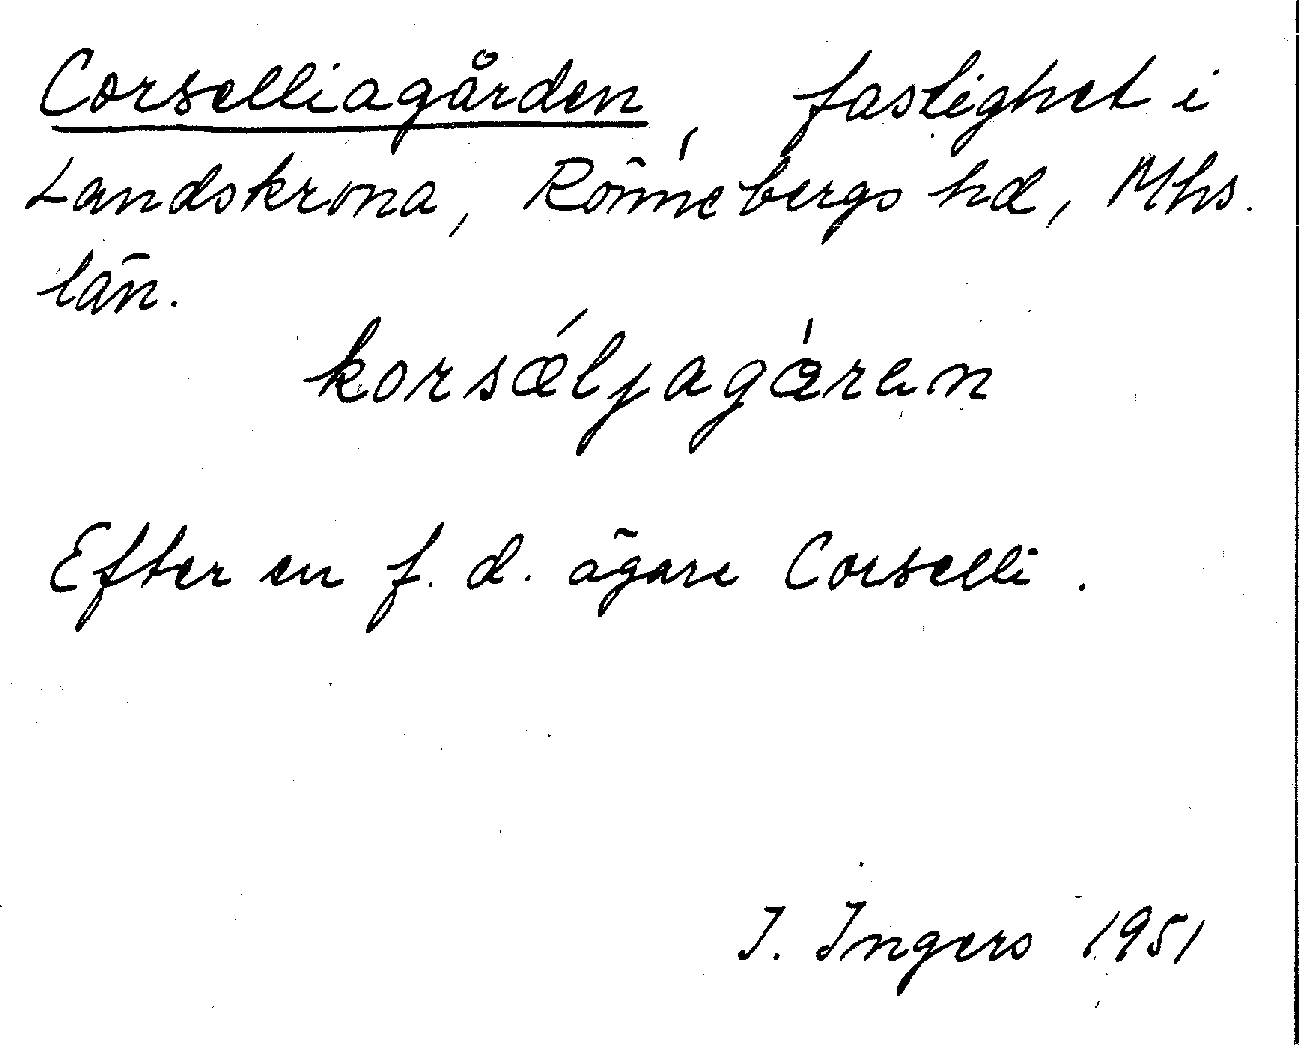 Corselliagården, fastighet i
Landskrona, Rönnebergs hd, Mhs.
län.
korsæ´ljagå̀ren
Efter en f. d. ägare Corselli.
I. Ingers 1951